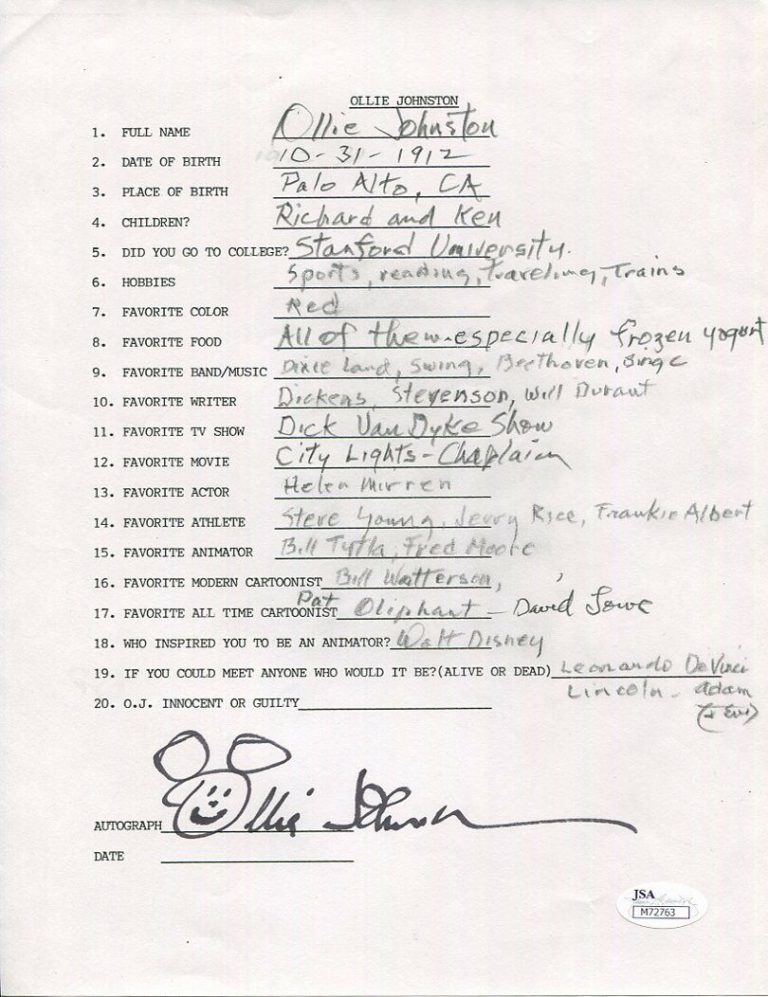 OLLIE JOHNSTON
1. FULL NAME Ollie Johnston
2. DATE OF BIRTH 10-31-1912
3. PLACE OF BIRTH Palo Alto, CA
4. CHILDREN? Richard and Ken
5. DID YOU GO TO COLLEGE? Stanford University.
6. HOBBIES Sports, reading, traveling, Trains
7. FAVORITE COLOR Red
8. FAVORITE FOOD All of them-especially frozen yogurt
9. FAVORITE BAND/MUSIC Dixie Land, Swing, Beethoven,
10. FAVORITE WRITER Dickens, Stevenson, Will Durant
11. FAVORITE TV SHOW Dick Van Dyke Show
12. FAVORITE MOVIE City Lights-
13. FAVORITE ACTOR Helen Mirren
14. FAVORITE ATHLETE Steve Young, Jerry Rice, Frankie Albert
15. FAVORITE ANIMATOR Bill Tytla, Fred Moore
16. FAVORITE MODERN CARTOONIST Bill Watterson,
17. FAVORITE ALL TIME CARTOONIST Pat Oliphant - David Lowe
18. WHO INSPIRED YOU TO BE AN ANIMATOR? Walt Disney
19. IF YOU COULD MEET ANYONE WHO WOULD IT BE?(ALIVE OR DEAD) Leonardo DeVinci
Lincoln - Adam
(+ Eve)
20. O.J. INNOCENT OR GUILTY
AUTOGRAPH Ollie Johnston
DATE
JSA
M72763